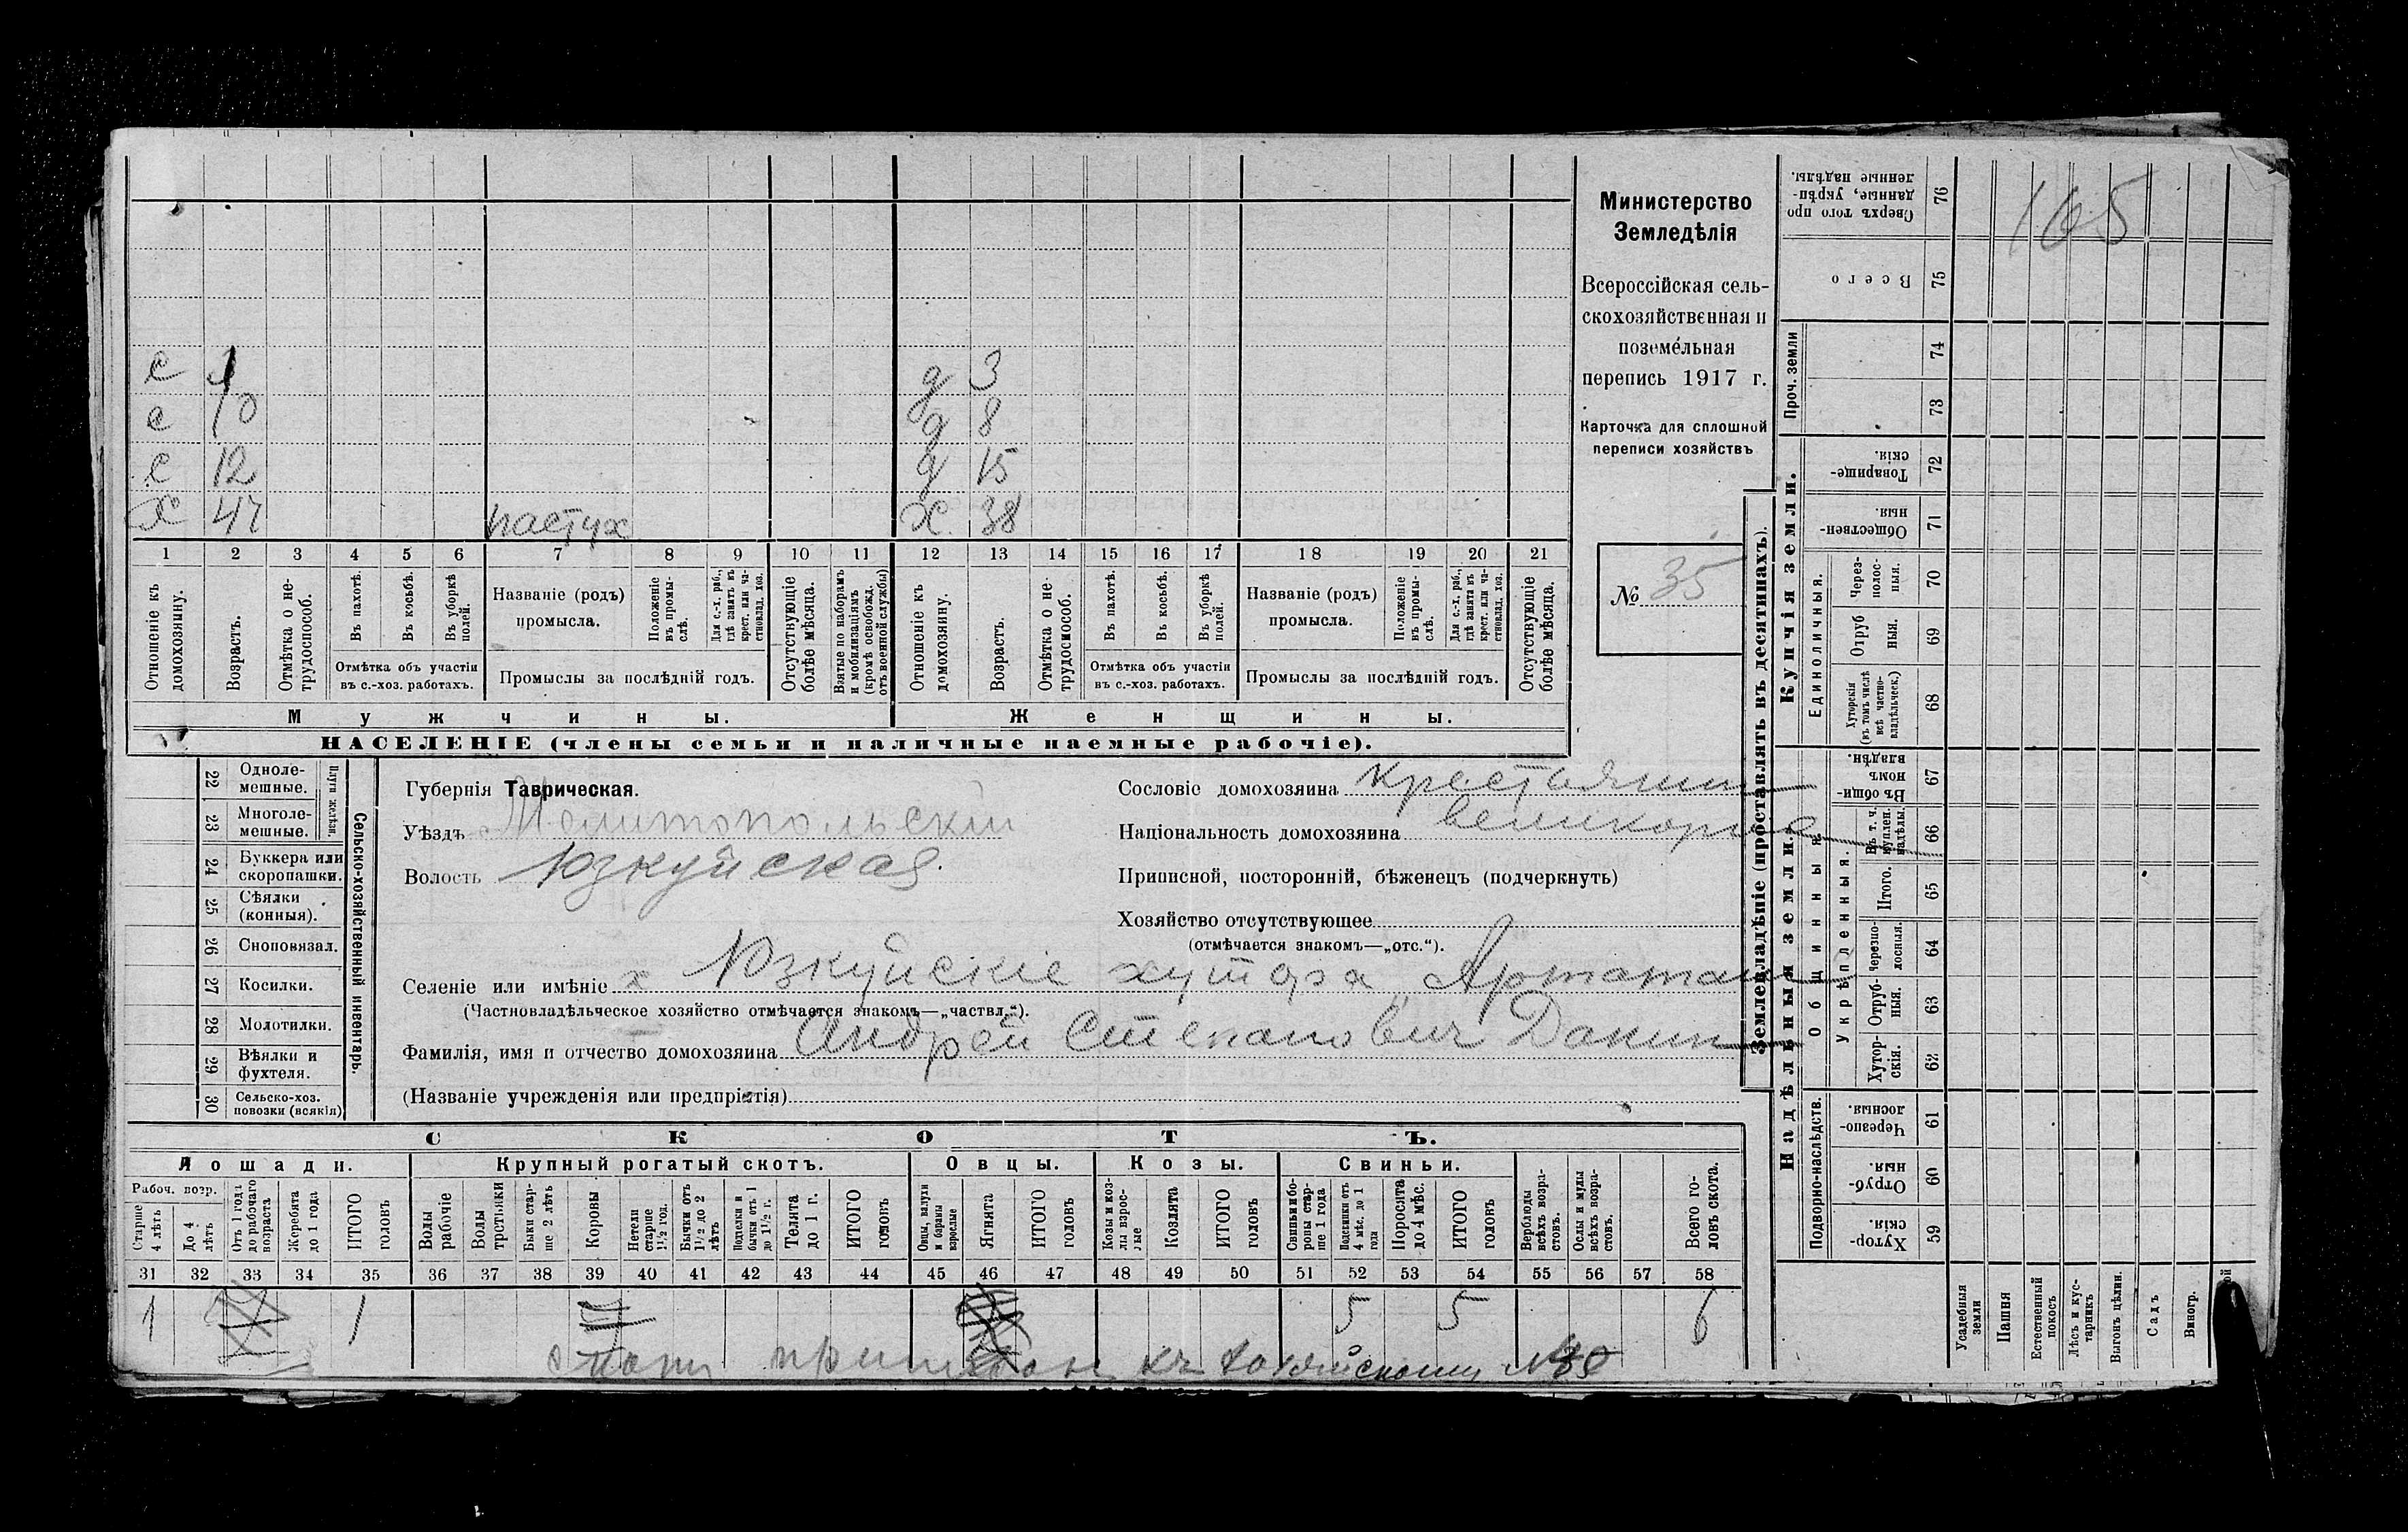 с 1 д 3
с 10 д 8
с 12 д 15
х 47 пастух х 38
1 2 3 4 5 6 7 8 9 10 11 12 13 14 15 16 17 18 19 20 21
Отношеніе къ домохозяину.
Возрастъ.
Отмѣтка о не-трудоспособ.
Въ пахотѣ.
Въ косьбѣ.
Въ уборкѣ полей.
Отмѣтка объ участіи въ с.-хоз. работахъ.
Названіе (родъ) промысла.
Положеніе въ промы-слѣ.
Для с.-х. раб., гдѣ занятъ въ крест. или ча-стновлад. хоз.
Промыслы за послѣдній годъ.
Отсутствующіе болѣе мѣсяца.
Взятые по наборамъ и мобилизаціямъ (кромѣ освобожд. отъ военной службы)
Отношеніе къ домохозяину.
Возрастъ.
Отмѣтка о не-трудоспособ.
Въ пахотѣ.
Въ косьбѣ.
Въ уборкѣ полей.
Отмѣтка объ участіи въ с.-хоз. работахъ.
Названіе (родъ) промысла.
Положеніе въ промы-слѣ.
Для с.-х. раб., гдѣ занята въ крест. или ча-стновлад. хоз.
Промыслы за послѣдній годъ.
Отсутствующіе болѣе мѣсяца.
Мужчины.
Женщины.
НАСЕЛЕНІЕ (члены семьи и наличные наемные рабочіе).
Министерство
Земледѣлія
Всероссійская сель-
скохозяйственная и
поземе́льная
перепись 1917 г.
Карточка для сплошной
переписи хозяйствъ
№ 35
22 Одноле-мешные.
23 Многоле-мешные.
Плуги желѣзн.
24 Буккера или скоропашки.
25 Сѣялки (конныя).
26 Сноповязал.
27 Косилки.
28 Молотилки.
29 Вѣялки и фухтеля.
30 Сельско-хоз. повозки (всякія)
Сельско-хозяйственный инвентарь.
Губернія Таврическая.
Уѣздъ Мелитопольскій
Волость Юзкуйская.
Сословіе домохозяина крестьянин
Національность домохозяина великорос
Приписной, посторонній, бѣженецъ (подчеркнуть)
Хозяйство отсутствующее
(отмѣчается знакомъ—„отс.“).
Селеніе или имѣніе х Юзкуйскіе хутора
(Частновладѣльческое хозяйство отмѣчается знакомъ—„частвл.“).
Фамилія, имя и отчество домохозяина Андрей Степанович Данин
(Названіе учрежденія или предпріятія)
СКОТЪ.
Лошади. Крупный рогатый скотъ. Овцы. Козы. Свиньи.
Рабоч. возр.
Старше 4 лѣтъ
До 4 лѣтъ
Отъ 1 года до рабочаго возраста
Жеребята до 1 года
ИТОГО головъ
Волы рабочіе
Волы третьяки
Быки стар-ше 2 лѣтъ
Коровы
Нетели старше 1½ год.
Бычки отъ 1½ до 2 лѣтъ
Подтелки и бычки отъ 1 до 1½ г.
Телята до 1 г.
ИТОГО головъ
Овцы, валухи и бараны взрослые
Ягнята
ИТОГО головъ
Козы и коз-лы взрос-лые
Козлята
ИТОГО головъ
Свиньи и бо-ровы стар-ше 1 года
Подсвинки отъ 4 мѣс. до 1 года
Поросята до 4 мѣс.
ИТОГО головъ
Верблюды всѣхъ возра-стовъ.
Ослы и мулы всѣхъ возра-стовъ.
Всего го-ловъ скота.
31 32 33 34 35 36 37 38 39 40 41 42 43 44 45 46 47 48 49 50 51 52 53 54 55 56 57 58
1 1 5 5 6
къ хозяйскому № 30
Землевладѣніе (проставлять въ десятинахъ).
Купчія земли.
Надѣльныя земли.
Проч. земли
Единоличныя.
Общинныя.
Укрѣпленныя.
Подворно-наслѣдств.
Сверхъ того про данные, укрѣп-ленные надѣлы. 76
Всего 75
74
73
Товарище-скія. 72
Обществен-ныя. 71
Через-полос-ныя. 70
Отруб ныя. 69
Хуторскія (въ томъ числѣ всѣ частно-владѣльческ.) 68
Въ общи-номъ владѣн. 67
Въ т. ч. куплен. надѣлы. 66
Итого. 65
Черезпо-лосныя. 64
Отруб-ныя. 63
Хутор-скія. 62
Черезпо-лосныя. 61
Отруб-ныя. 60
Хутор-скія. 59
Усадебныя земли
Пашня
Естественный покосъ
Лѣсъ и кус-тарникъ
Выгонъ цѣлин.
Садъ
Виногр.
165